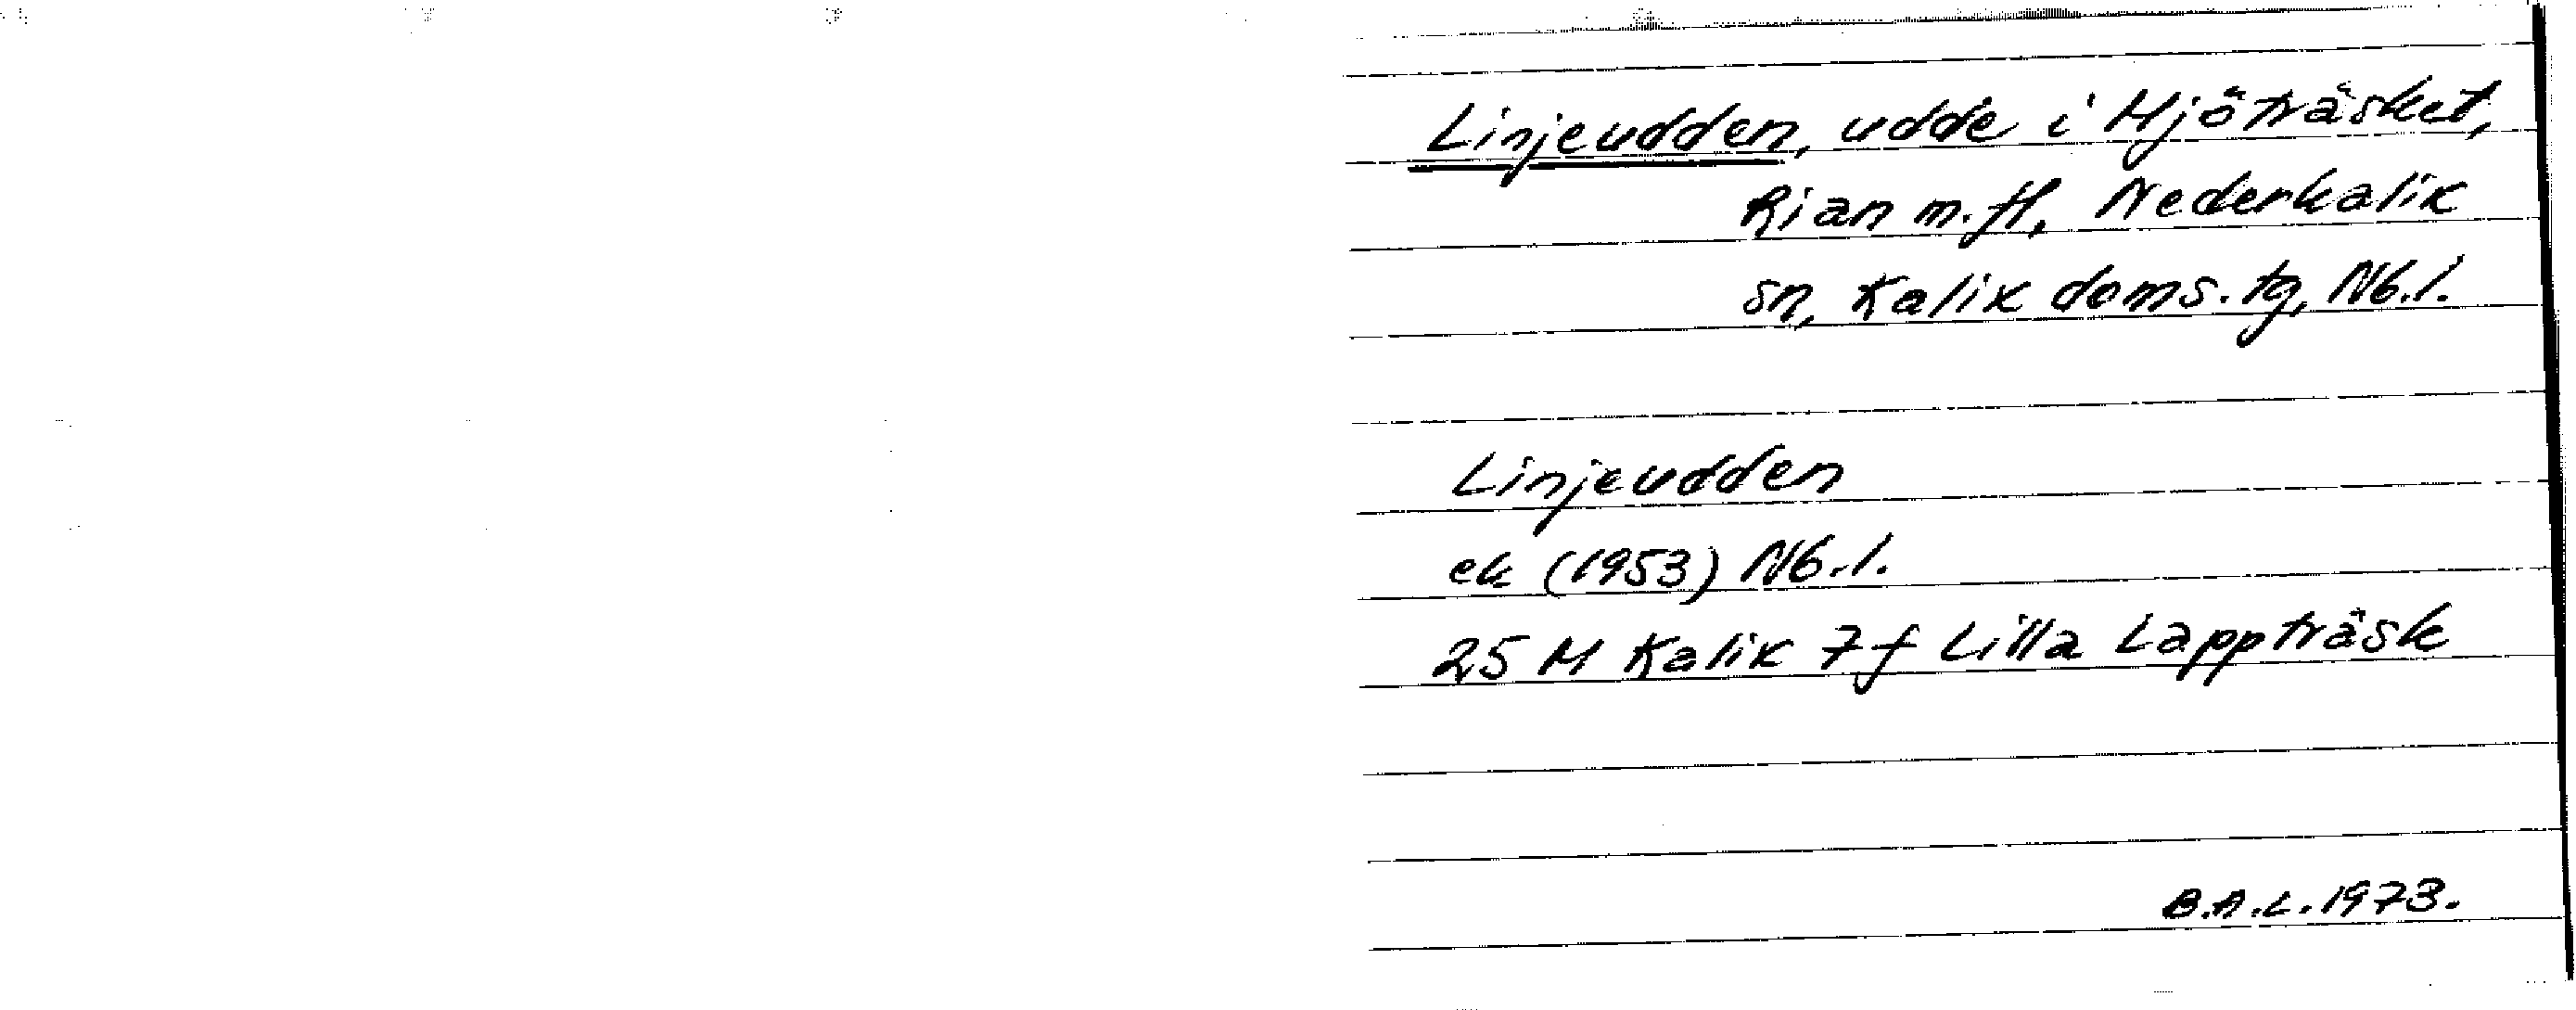 Linjeudden, udde i Mjöträsket,
Rian m.fl, Nederkalix
sn, Kalix doms.tg, Nb.l.
Linjeudden
ek (1953) Nb.l.
25 M Kalix 7f Lilla Lappträsk
B.A.L. 1973.